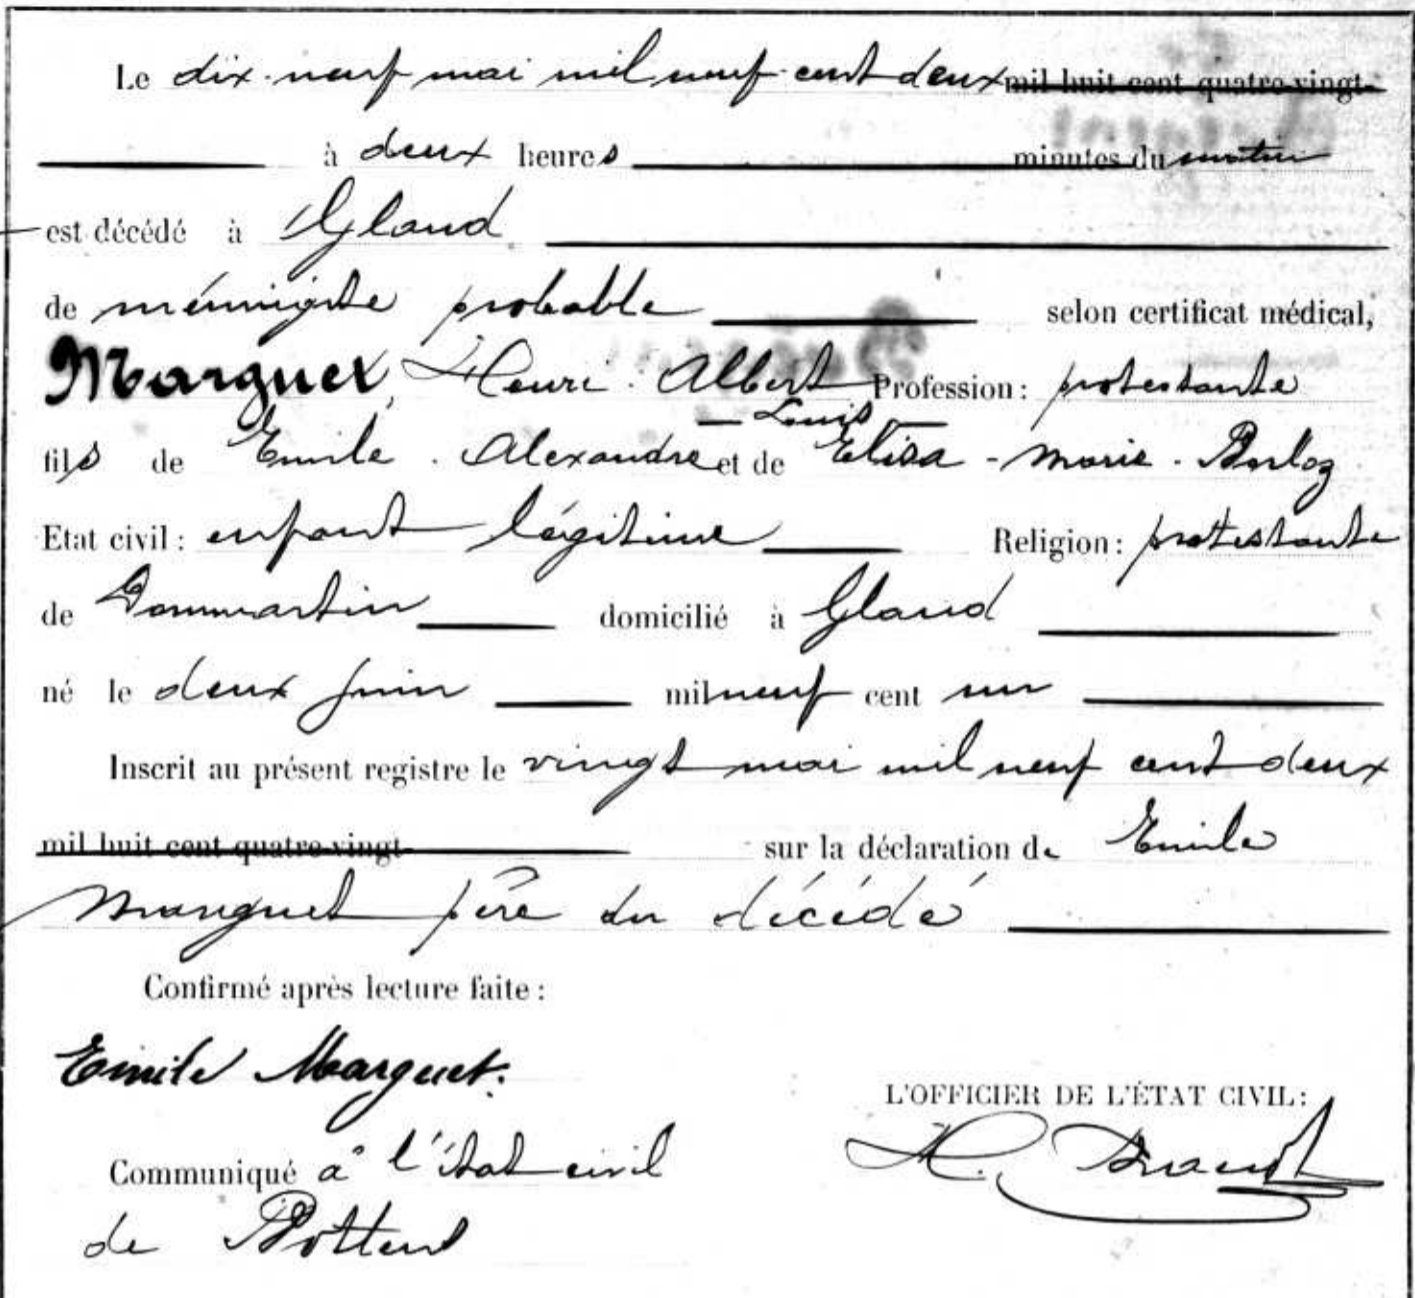 Le dix-neuf mai mil neuf cent deux mil huit cent quatre-vingt-
à deux heures minutes du matin
est décédé à Gland
de méningite probable selon certificat médical,
Marguet, Henri-Albert Profession: protestante
Louis
fils de Emile-Alexandre et de Elisa-Marie-Borloz
Etat civil: enfant légitime Religion: protestante
de Dommartin domicilié à Gland
né le deux juin mil neuf cent un
Inscrit au présent registre le vingt mai mil neuf cent deux
mil huit cent quatre-vingt- sur la déclaration de Emile
Marguet père du décédé
Confirmé après lecture faite:
Emile Marguet.
L'OFFICIER DE L'ÉTAT CIVIL:
Communiqué à l'état civil
de Bottens